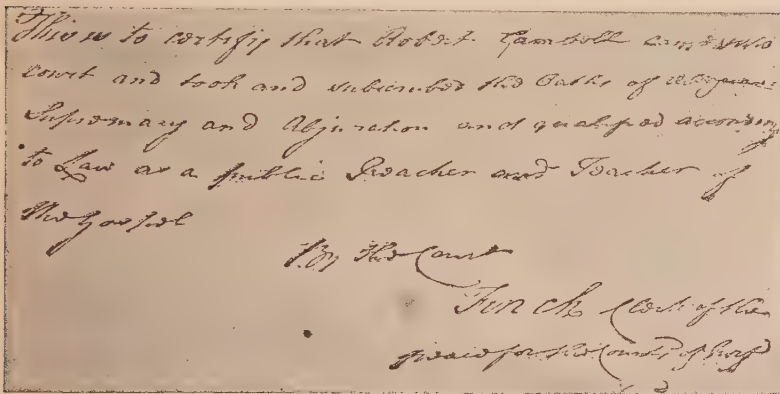 This is to certify that Robert Gamboll came into
court and took and subscribed the Oaths of
Supremacy and Abjuration and qualified according
to Law as a public Preacher and Teacher of
the Gospel
By the Court
Clerk of the
for the County of